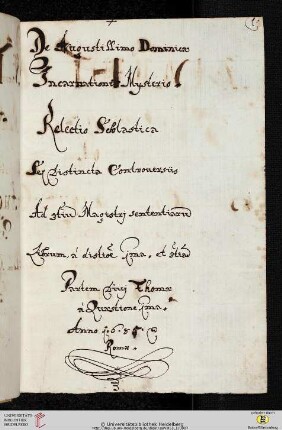 De Augustissimo Dominicæ
Incarnationis Mysterio
Relectio Scholastica
Sex distincta Controversiis
Ad 3tiū Magistri sententiarū
Librum, à distioe pma, et 3tiā
Partem Divi Thomæ
à Quæstione pma.
Anno 16
Romæ
UNIVERSITÄTS-
BIBLIOTHEK
HEIDELBERG
© Universitätsbibliothek Heidelberg